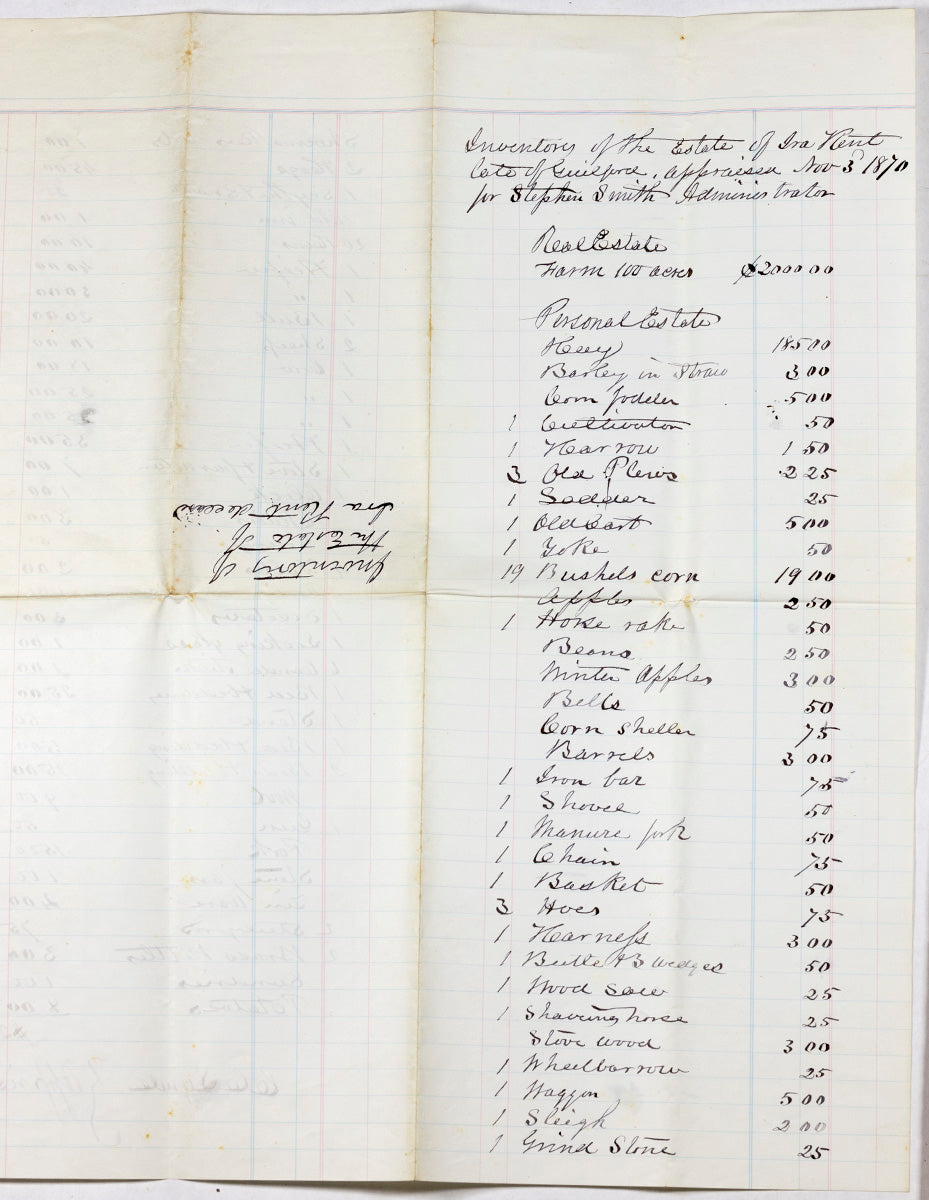 Inventory of the Estate of Ira Kent
late of Guilford, appraised Nov 3d 1870
for Stephen Smith Administrator
Real Estate
Farm 100 acres $2000 00
Personal Estate
Hay 185 00
Barley in Straw 3 00
Corn fodder 5 00
1 Cultivator 50
1 Harrow 1 50
3 Old Plows 2 25
1 Ladder 25
1 Old Cart 5 00
1 Yoke 50
19 Bushels corn 19 00
Apples 2 50
1 Horse rake 50
Beans 2 50
Winter Apples 3 00
Bells 50
Corn sheller 75
Barrels 3 00
1 Iron bar 75
1 Shovel 50
1 Manure fork 50
1 Chain 75
1 Basket 50
3 Hoes 75
1 Harness 3 00
1 Butle & 3 wedges 50
1 Wood saw 25
1 Shaving horse 25
Stove wood 3 00
1 Wheelbarrow 25
1 Waggon 5 00
1 Sleigh 2 00
1 Grind Stone 25
Inventory of
the Estate of
Ira Kent deceasd